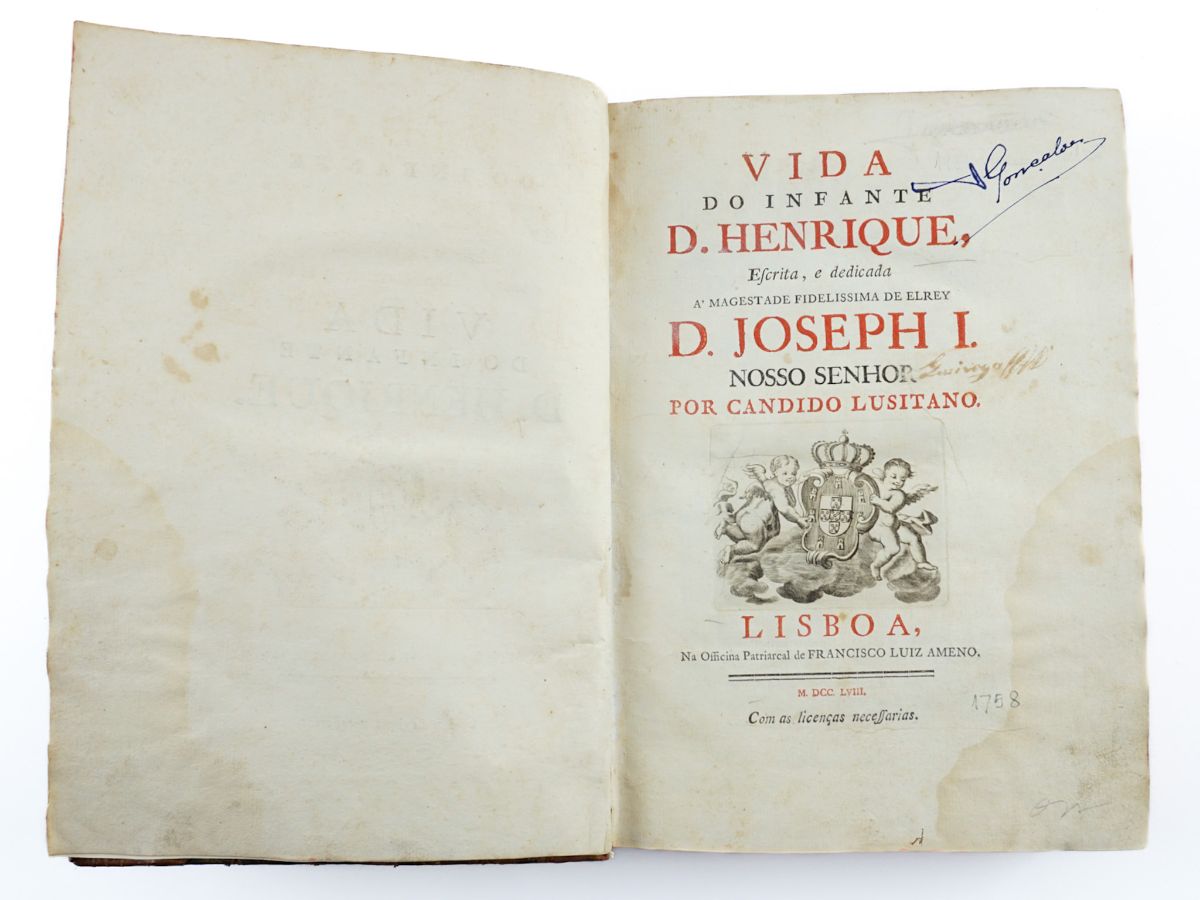 VIDA
DO INFANTE
D. HENRIQUE,
Eſcrita, e dedicada
A' MAGESTADE FIDELISSIMA DE ELREY
D. JOSEPH I.
NOSSO SENHOR
POR CANDIDO LUSITANO.
LISBOA,
Na Officina Patriarcal de FRANCISCO LUIZ AMENO.
M. DCC. LVIII.
1758
Com as licenças neceſſarias.
Gonçalves